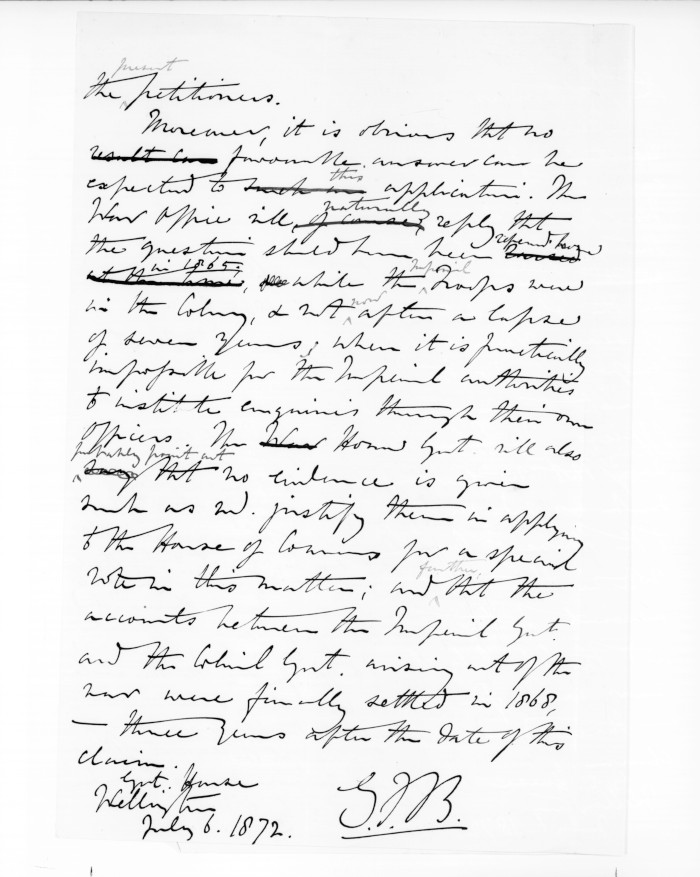 present
the petitioners.
Moreover, it is obvious that no
result can favourable answer can be
this
expected to such an application. The
naturally
War Office will, of course, reply that
referred home
the question should have been raised
in 1865, Imperial
at the time, while the Troops were
now
in the Colony, & not after a lapse
of seven years; when it is practically
impossible for the Imperial authorities
to institute enquiries through their own
Officers. The War Home Govt. will also
probably point out
say that no evidence is given
such as wd. justify them in applying
to the House of Commons for a special
further,
vote in this matter; and that the
accounts between the Imperial Govt.
and the Colonial Govt. arising out of the
war were finally settled in 1868,
— three years after the date of this
claim.
Govt. House
Wellington
July 6. 1872.
G.F.B.